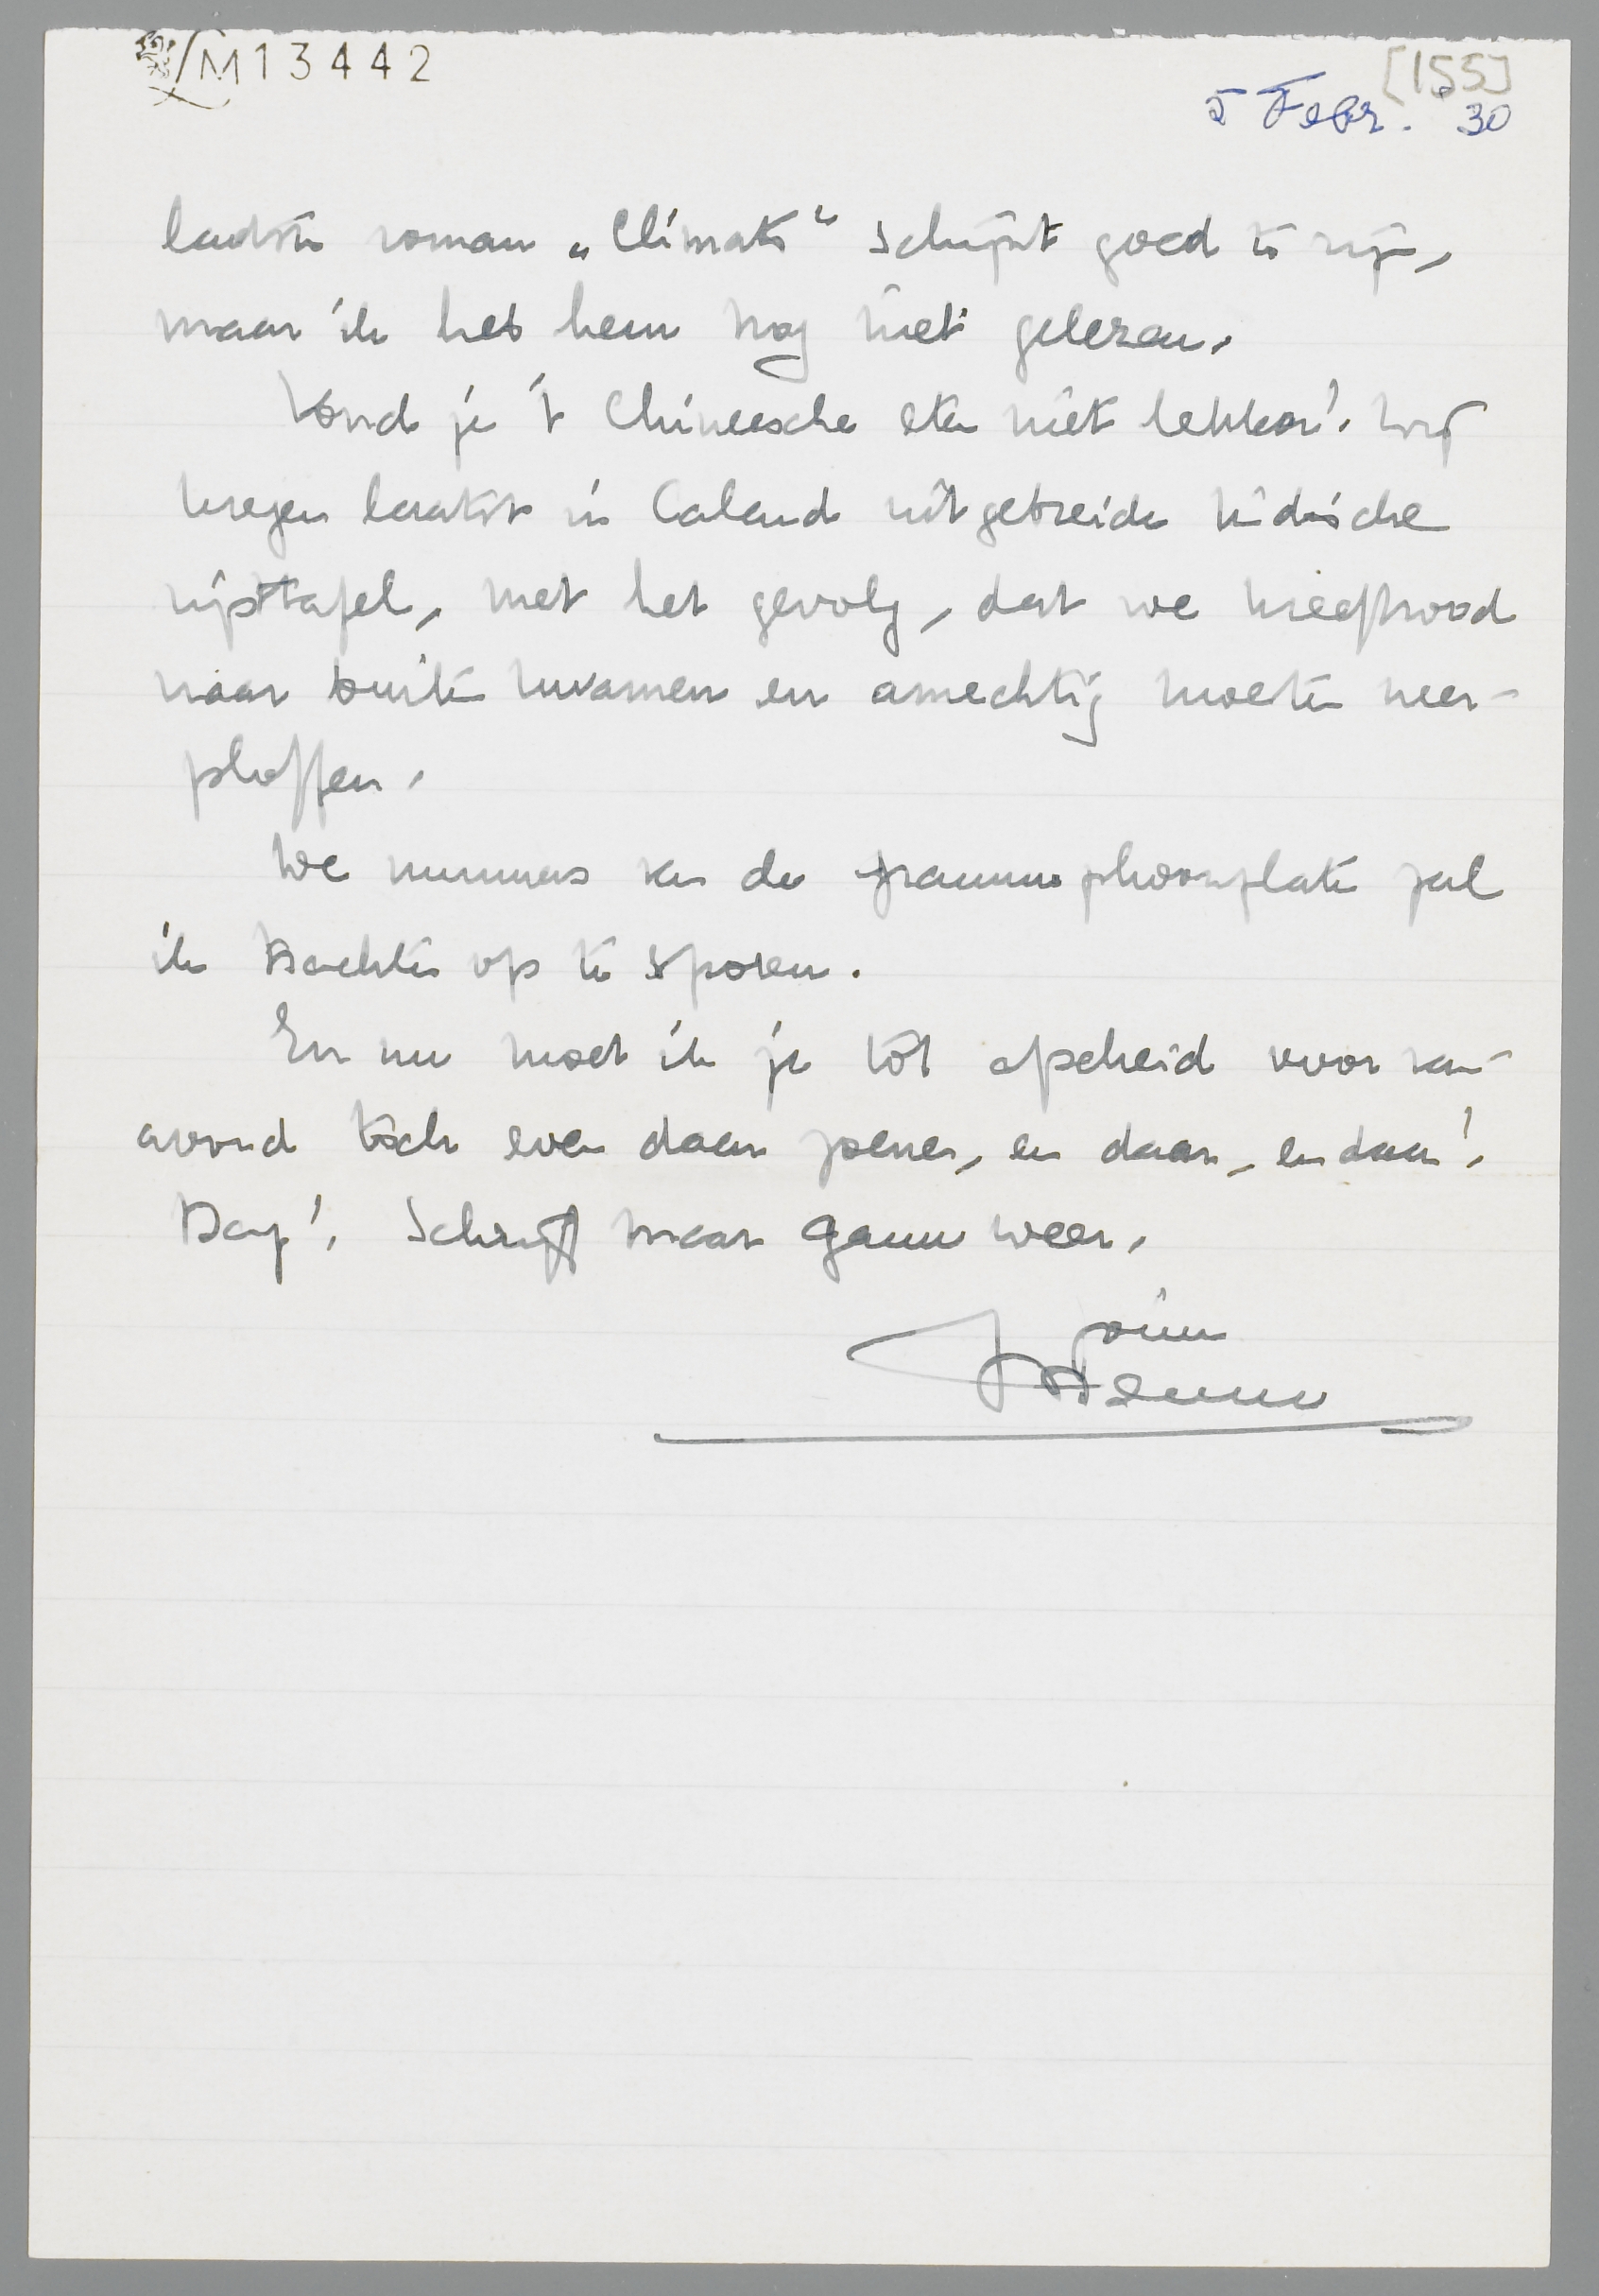 M13442
[155]
5 Febr. '30
laatste roman „Climats" schijnt goed te zijn,
maar ik heb hem nog niet gelezen.
Vond je 't Chineesche eten niet lekker! Wij
kregen laatst in Caland uitgebreide Indische
rijsttafel, met het gevolg, dat we kreeftrood
naar buiten kwamen en amechtig moesten neer-
ploffen.
De nummers van de grammophoonplaten zal
ik trachten op te sporen.
En nu moet ik je tot afscheid voor van-
avond toch even daar zoenen, en daar, en daar!
Dag! Schrijf maar gauw weer.
jouw